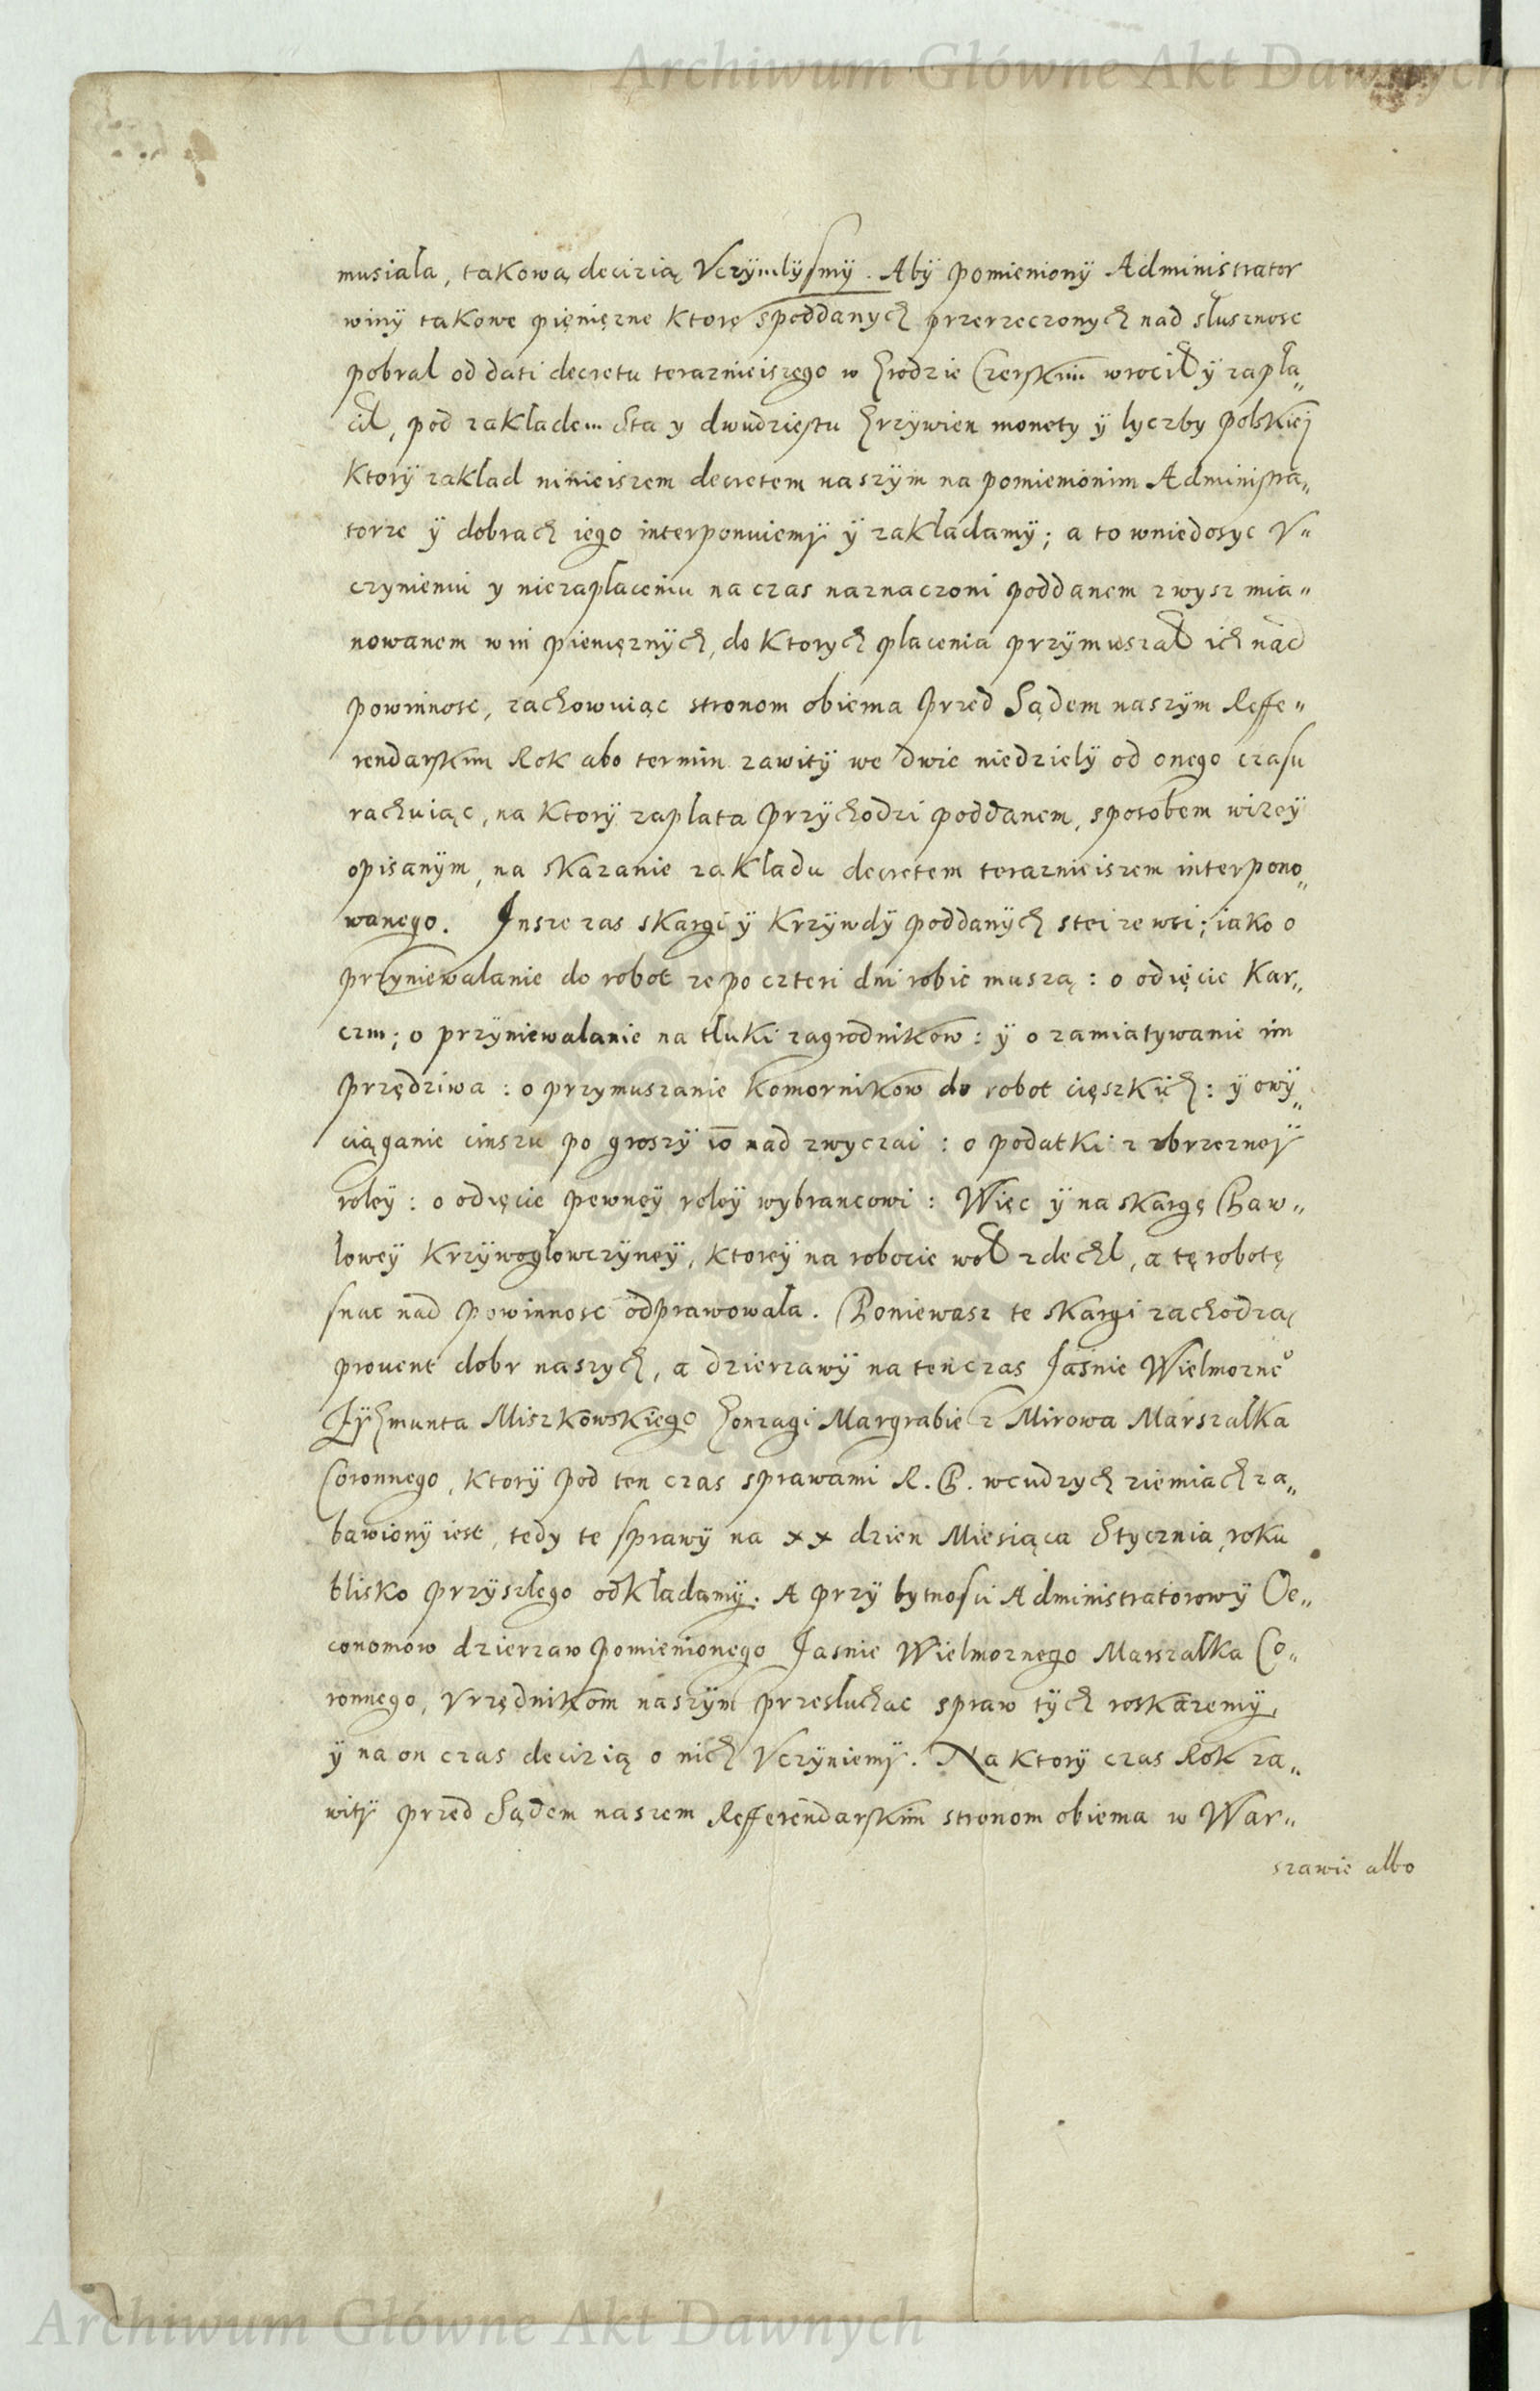 Archiwum Główne Akt Dawnych
musiala, takową decizią Vczynilysmÿ. Abÿ pomienionÿ Administrator
winÿ takowe pięnięzne ktorę spoddanych przerzeczonych nad słusznosc
pobral od dati decretu teraznieiszęgo w Grodzie Czerskim wrociłÿ zapła„
cił, pod zakladem Sta y dwudziestu Grzÿwien monety ÿ lyczby polskieÿ
ktorÿ zaklad ninieiszem decretem naszÿm na pomienionim Administra„
torze ÿ dobrach iego interponuiemÿ ÿ zakładamÿ; a to wniedosyc V„
czynieniu y niezaplaceniu na czas naznaczoni poddanem zwysz mia„
nowanem win pienięznÿch, do ktorych placenia przÿmuszał ich nad
powinnosc, zachowuiąc stronom obiema Przed Sądem naszÿm Reffe„
rendarskim Rok abo termin zawitÿ we dwie niedzielÿ od onego czasu
rachuiąc, na ktorÿ zaplata Przÿchodzi poddanem, sposobem wizeÿ
opisanÿm, na skazanie zakładu decretem teraznieiszem interpono„
wanego. Insze zas skargi ÿ krzÿwdÿ poddanÿch stei ze wsi; iako o
przyniewalanie do robot ze po czteri dni robic muszą: o odięcie Kar„
czm; o przÿniewalanie na tłuki zagrodnikow: ÿ o zamiatywanie im
Przędziwa: o przymuszanie komornikow do robot cięszkich: ÿ owÿ„
ciąganie cinszu po groszÿ 10 nad zwyczai: o podatki z obrzezneÿ
roleÿ: o odięcie pewneÿ roleÿ wybrancowi: Więc ÿ na skargę Paw„
łoweÿ Krzÿwogłowczÿneÿ, ktoreÿ na robocie wół zdechł, a tę robotę
snac nad Powinnosc odprawowała. Poniewasz te skargi zachodzą
prouent dobr naszych, a dzierzawÿ na ten czas Jasnie Wielmozneº
Zÿgmunta Miszkowskiego Gonzagi Margrabie z Mirowa Marszałka
Coronnego, ktorÿ pod ten czas sprawami R. P. wcudzych ziemiach za„
bawionÿ iest, tedy te sprawÿ na xx dzien Miesiąca Stycznia roku
blisko przÿszlego odkładamÿ. A przÿ bytnosci Administratorowÿ Oe„
conomow dzierzaw Pomienionego Jasnie Wielmoznego Marszałka Co„
ronnego, Vrzędnikom naszÿm przesłuchac spraw tÿch roskazemÿ,
ÿ na on czas decizią o nich Vczÿniemÿ. Na ktorÿ czas Rok za„
witÿ przed Sądem naszem Refferendarskim stronom obiema w War„
szawie albo
Archiwum Główne Akt Dawnych